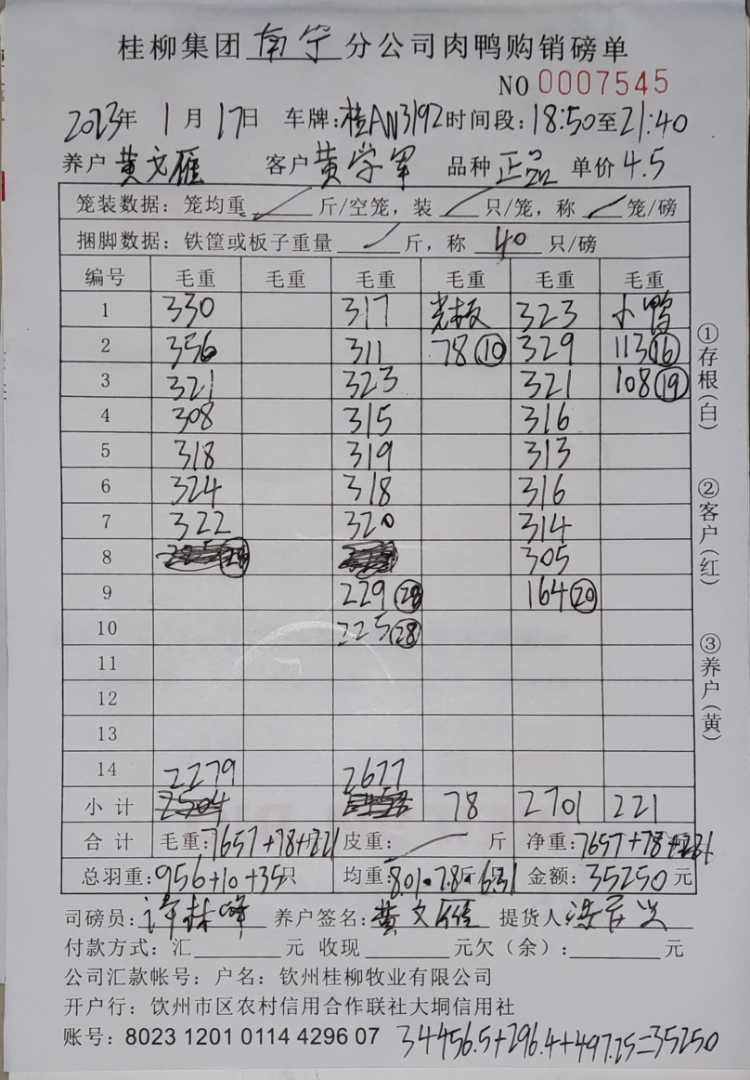 桂柳集团南宁分公司肉鸭购销磅单
NO 0007545
2023年 1月 17日 车牌:桂AN3192 时间段:18:50至21:40
养户 黄文雁 客户 黄学军 品种 正品 单价 4.5
笼装数据：笼均重 斤/空笼，装 只/笼，称 笼/磅
捆脚数据：铁筐或板子重量 斤，称 40 只/磅
编号 毛重 毛重 毛重 毛重 毛重 毛重
1 330 317 光板 323 小鸭
2 356 311 78⑩ 329 113⑯
3 321 323 321 108⑲
4 308 315 316
5 318 319 313
6 324 318 316
7 322 320 314
8 305
9 229㉘ 164⑳
10 225㉘
11
12
13
14 2279 2677
小计 78 2701 221
合计 毛重:7657+78+221 皮重: 斤 净重:7657+78+221
总羽重:956+10+35只 均重:8.01·7.8·6.31 金额:35250元
司磅员: 养户签名:黄文雁 提货人
付款方式:汇 元 收现 元欠(余): 元
公司汇款帐号：户名：钦州桂柳牧业有限公司
开户行：饮州市区农村信用合作联社大垌信用社
账号:8023 1201 0114 4296 07 34456.5+296.4+497.25=35250
①存根(白)
②客户(红)
③养户(黄)